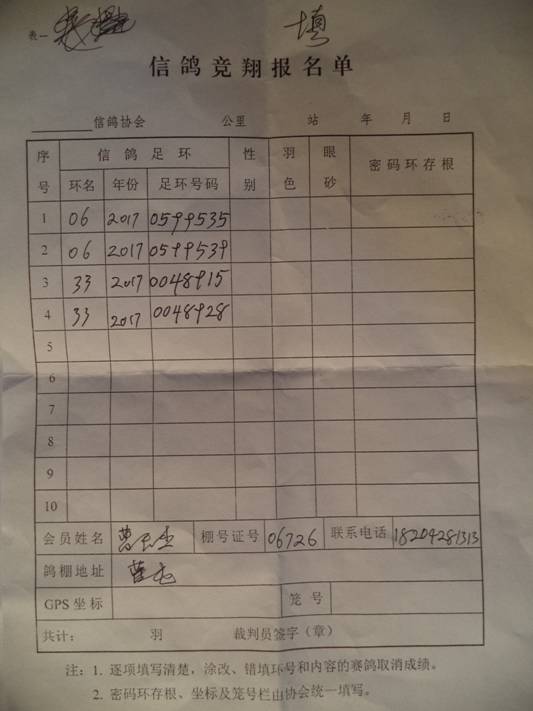 表一 填
信鸽竞翔报名单
信鸽协会 公里 站 年 月 日
序号 信鸽足环 性别 羽色 眼砂 密码环存根
环名 年份 足环号码
1 06 2017 0599535
2 06 2017 0599539
3 33 2017 0048915
4 33 2017 0048928
5
6
7
8
9
10
会员姓名 棚号证号 06726 联系电话 18204281313
鸽棚地址
GPS坐标 笼号
共计： 羽 裁判员签字（章）
注：1. 逐项填写清楚，涂改、错填环号和内容的赛鸽取消成绩。
2. 密码环存根、坐标及笼号栏由协会统一填写。